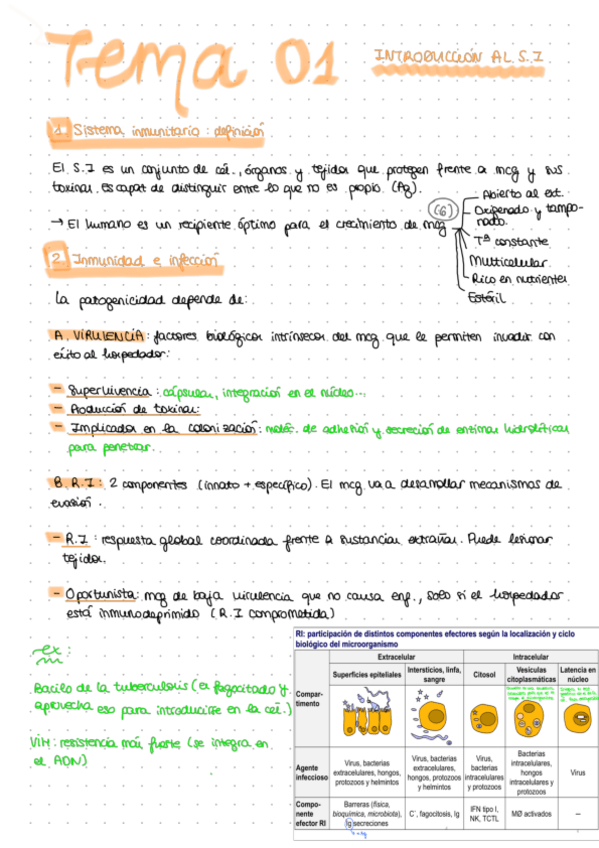 Tema 01
INTRODUCCIÓN AL S.I
1. Sistema inmunitario: definición
El S.I es un conjunto de cél., órganos y tejidos que protegen frente a mcg y sus
toxinas. Es capaz de distinguir entre lo que no es propio (Ag).
→ El humano es un recipiente óptimo para el crecimiento de mcg
(6)
Abierto al ext.
Oxigenado y tampo-
nado.
Tª constante
Multicelular
Rico en nutrientes
Estéril
2. Inmunidad e infección
La patogenicidad depende de:
A. VIRULENCIA: factores biológicos intrínsecos del mcg que le permiten invadir con
éxito al hospedador:
- Supervivencia: cápsulas, integración en el núcleo...
- Producción de toxinas:
- Implicados en la colonización: moléc. de adhesión y secreción de enzimas hidrolíticas
para penetrar.
B. R.I: 2 componentes (innato + específico). El mcg va a desarrollar mecanismos de
evasión.
- R.I: respuesta global coordinada frente a sustancias extrañas. Puede lesionar
tejidos.
- Oportunista: mcg de baja virulencia que no causa enf., solo si el hospedador
está inmunodeprimido (R.I comprometida)
ex:
Bacilo de la tuberculosis (es fagocitado y
aprovecha eso para introducirse en la cél.)
VIH: resistencia más fuerte (se integra en
el ADN)
RI: participación de distintos componentes efectores según la localización y ciclo
biológico del microorganismo
Extracelular
Intracelular
Superficies epiteliales
Intersticios, linfa,
sangre
Citosol
Vesículas
citoplasmáticas
Latencia en
núcleo
Compar-
timento
Agente
infeccioso
Virus, bacterias
extracelulares, hongos,
protozoos y helmintos
Virus, bacterias
extracelulares,
hongos, protozoos
y helmintos
Virus,
bacterias
intracelulares
y protozoos
Bacterias
intracelulares,
hongos
intracelulares y
protozoos
Virus
Compo-
nente
efector RI
Barreras (física,
bioquímica, microbiota),
Ig secreciones
C´, fagocitosis, Ig
IFN tipo I,
NK, TCTL
MØ activados
–